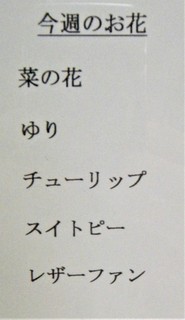 今週のお花
菜の花
ゆり
チューリップ
スイトピー
レザーファン